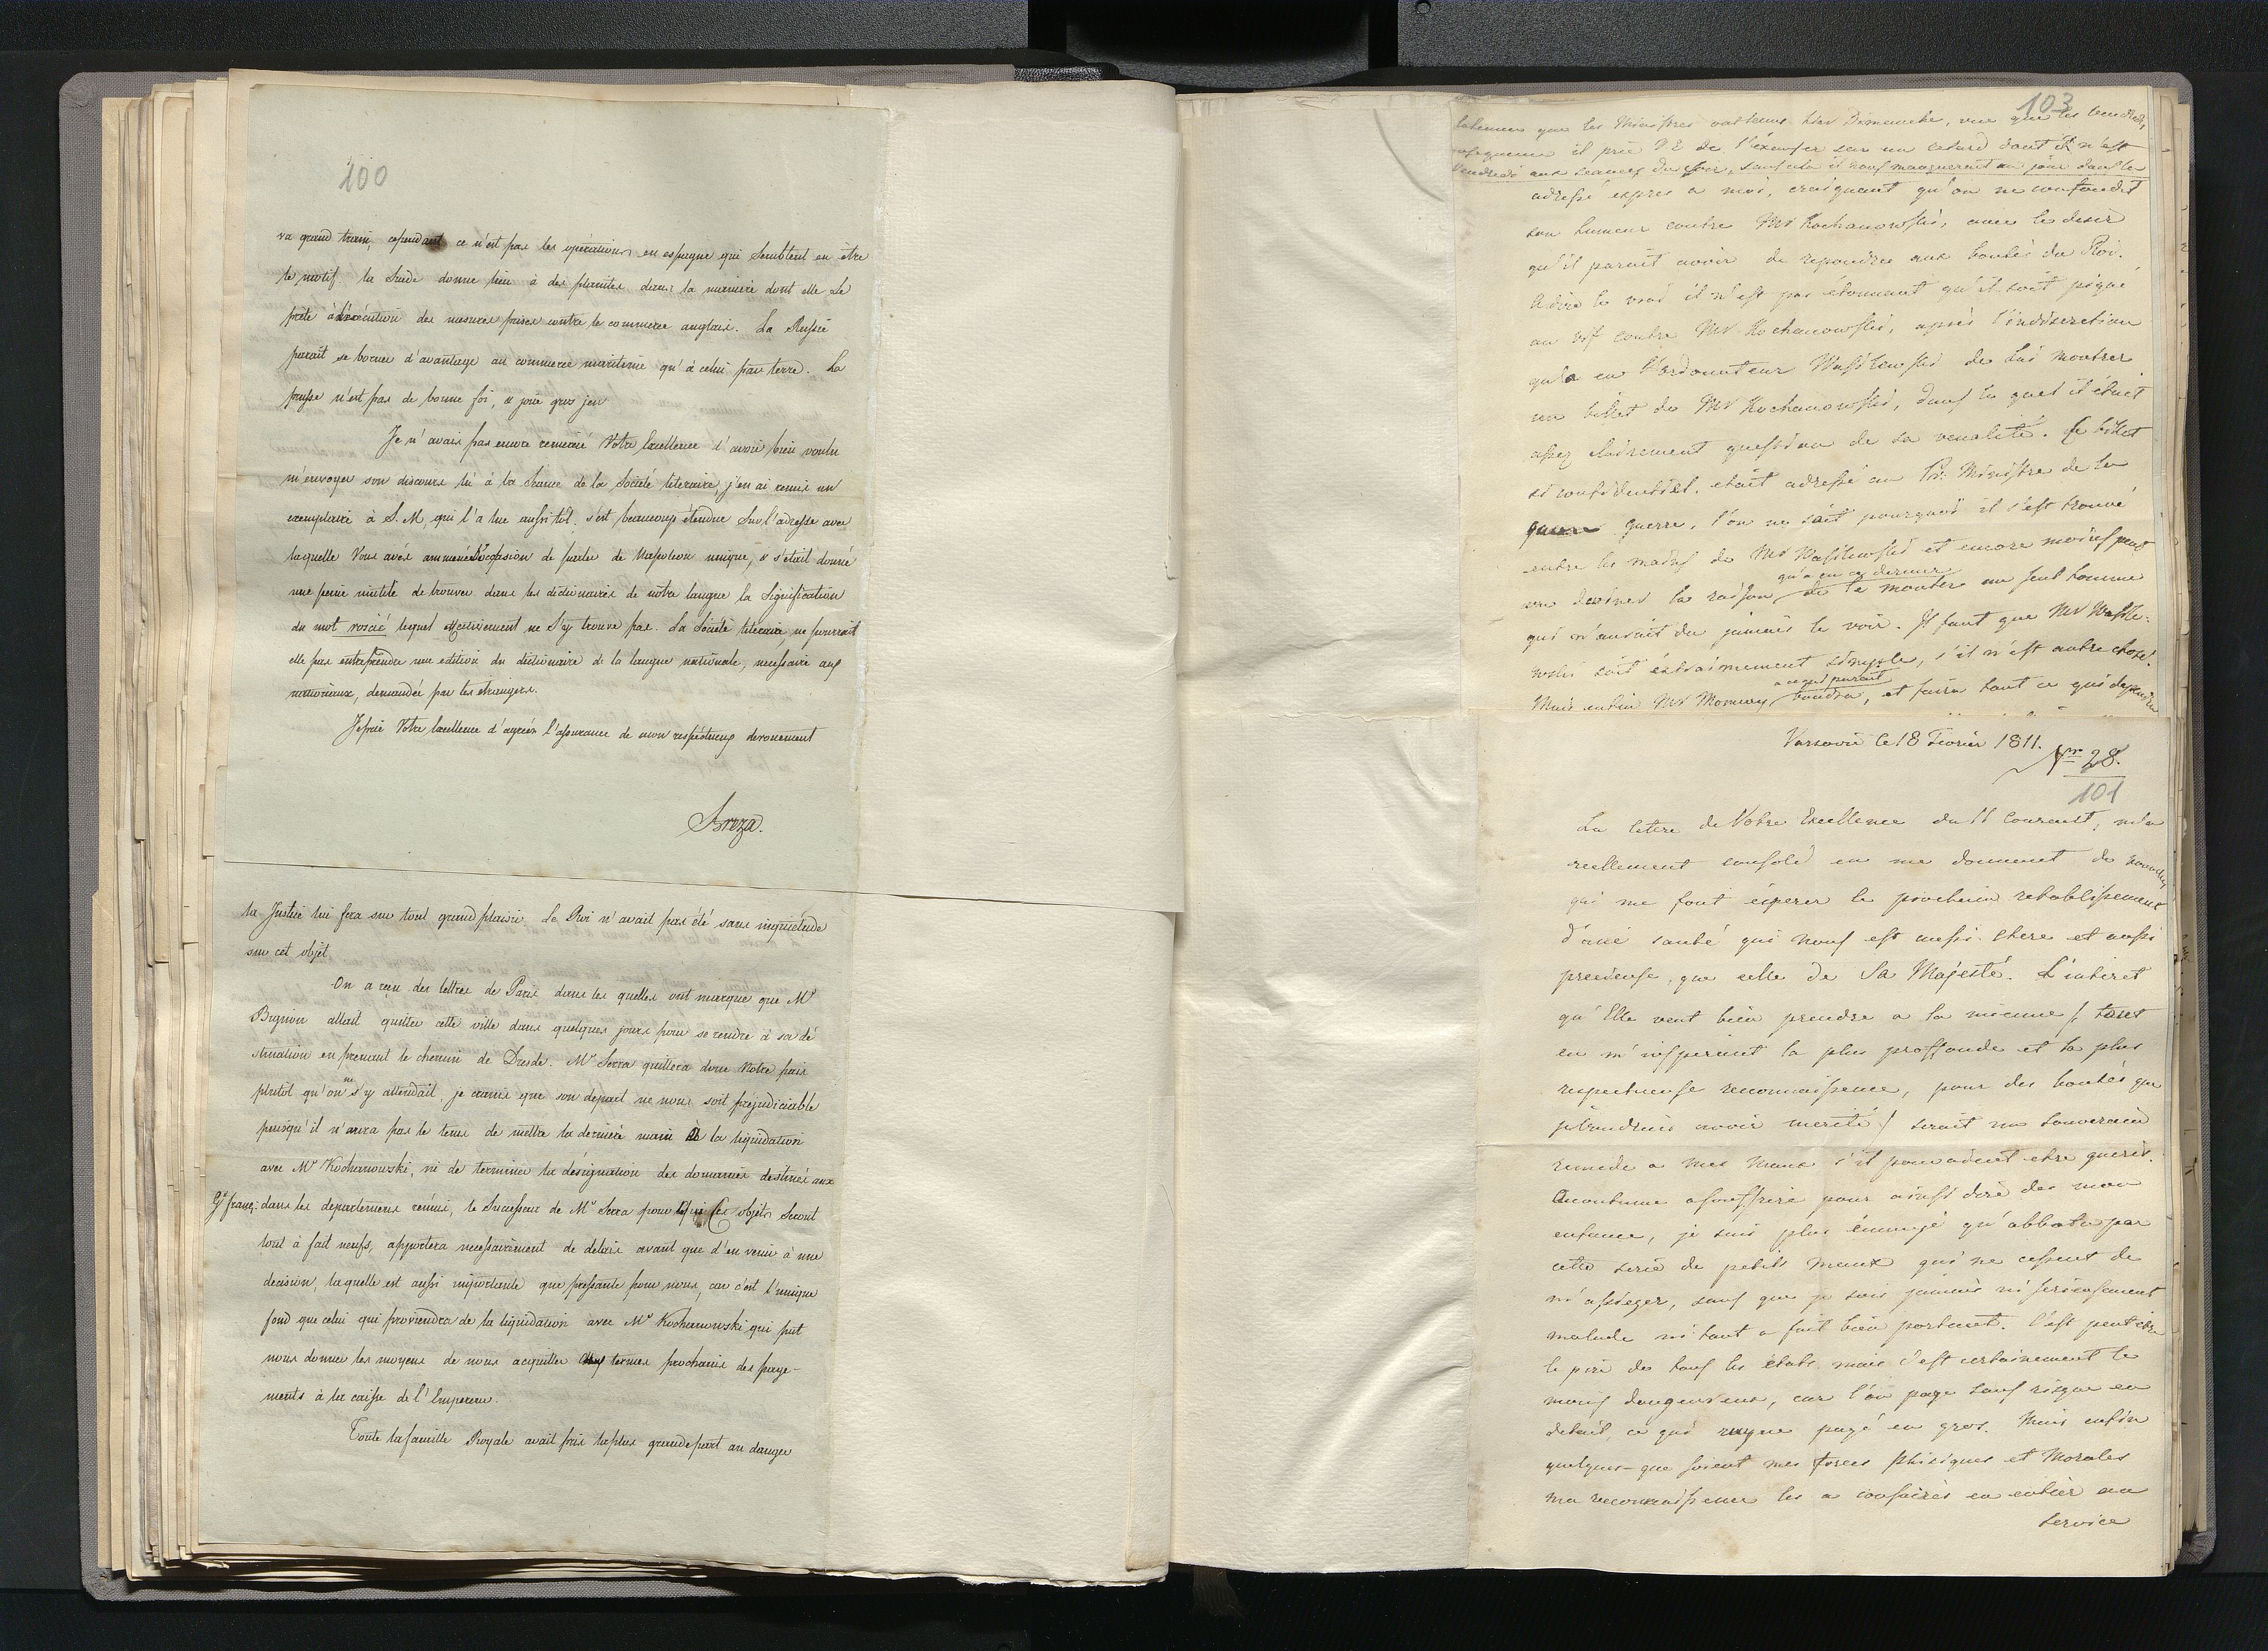 100
va grand train, cependant ce n'est pas les opérations en espagne qui semblent en être
le motif. la Suede donne lieu à des plaintes dans la manière dont elle se
prète à l'exécution des mesures prises contre le commerce anglais. La Russie
parait se borner d'avantage au commerce maritime qu'à celui par terre. La
prusse n'est pas de bonne foi, & joue gros jeu
Je n'avais pas encore remercié Votre Excellence d'avoir bien voulu
m'envoyer son discours lu à la Seance de la Société literaire, j'en ai remis un
exemplaire à S. M. qui l'a lue aussitôt, s'est beaucoup étendue sur l'adresse avec
laquelle Vous avés ammené l'occasion de parler de Napoleon unique, & s'était donné
une peine inutile de trouver dans les dictionaires de notre langue la signification
du mot roscić lequel effectivement ne s'y trouve pas. La Société literaire, ne pourrait
elle pas entreprendre une edition du dictionaire de la langue nationale, necessaire aux
nationaux, demandée par les étrangers.
Je prie Votre Excellence d'agréer l'assurance de mon respectueux devouement
Breza.
la Justice lui fera sur tout grand plaisir. Le Roi n'avait pas été sans inquiétude
sur cet objet
On a reçu des lettres de Paris dans les quelles ont marque que Mr
Bignon allait quitter cette ville dans quelques jours pour se rendre à sa dé
stination en prenant le chemin de Dresde. Mr Serra quittera donc Notre païs
plutôt qu'on ne s'y attendait, je crains que son départ ne nous soit préjudiciable
puisqu'il n'aura pas le tems de mettre la derniere main à la liquidation
avec Mr Kochanowski, ni de terminer la désignation des domaines destinés aux
Gx franç: dans les departemens réunis, le Successeur de Mr Serra pour qui ces objets seront
tout à fait neufs, apportera necessairement de delais avant que d'en venir à une
decision, laquelle est aussi importante que pressante pour nous, car c'est l'unique
fond que celui qui proviendra de la liquidation avec Mr Kochanowski qui put
nous donner les moyens de nous acquitter aux termes prochains des paye-
ments à la caisse de l'Empereur.
Toute la famille Royale avait pris la plus grande part au danger
103
que les Ministres ont tenus hier Dimanche, vue que les vendredi
il prie V E de l'éxcuser sur un retard dont il n'est
Vendredi aux seances du soir, sans cela il nous manquerait un jour dans les
adressé expres a moi, craignant qu'on ne confondit
son humeur contre Mr Kochanowski, avec le desir
qu'il parait avoir de repondre aux bontés du Roi.
A dire le vrai il n'est pas étonnant qu'il soit piqué
au vif contre Mr Kochanowski, après l'indiscretion
qu'a eu l'ordonnateur Wasilewski de lui montrer
un billet de Mr Kochanowski, dans le quel il était
assez clairement question de sa venalité. Ce billet
si confidentiel, etait adressé au Pr: Ministre de la
guerre, l'on ne sait pourquoi il s'est trouvé
entre les mains de Mr Wasilewski et encore moins peut
on deviner la raison qu'a eu ce dernier de le montrer au seul homme
qui n'aurait du jamais le voir. Il faut que Mr Wasile-
wski soit extraimement simple, s'il n'est autre chose!
Mais enfin Mr Momery a ce qui parait voudra, et faira tout ce qui dependra
Varsovie le 18 Fevrier 1811.
Nro 28.
101
La lettre de Votre Excellence du 11 Courant, m'a
reellement consolé en me donnent de nouvelles
qui me font éspérer le prochain retablissement
d'une santé qui nous est aussi chere et aussi
precieuse, que celle de Sa Majesté. L'interet
qu'Elle veut bien prendre a la mienne /: tout
en m'inspirant la plus proffonde et la plus
respectueuse reconnaissence, pour des bontés que
je voudrais avoir merité :/ serait un souverain
remede a mes maux s'il pouvaient etre gueris.
Accoutumé a souffrire pour ainsi dire des mon
enfance, je suis plus ennuyé qu'abbatu par
cette serie de petits maux qui ne cessent de
m'assieger, sans que je sois jamais ni serieusement
malade ni tout a fait bien portant. C'est peut être
le pire de tous les états, mais c'est certainement le
moins dangereux, car l'on paye sans risque en
detail, ce qui payé en gros. Mais enfin
quelques-que soient mes forces phisiques et Morales
ma reconnaissence les a consacrés en entier au
service